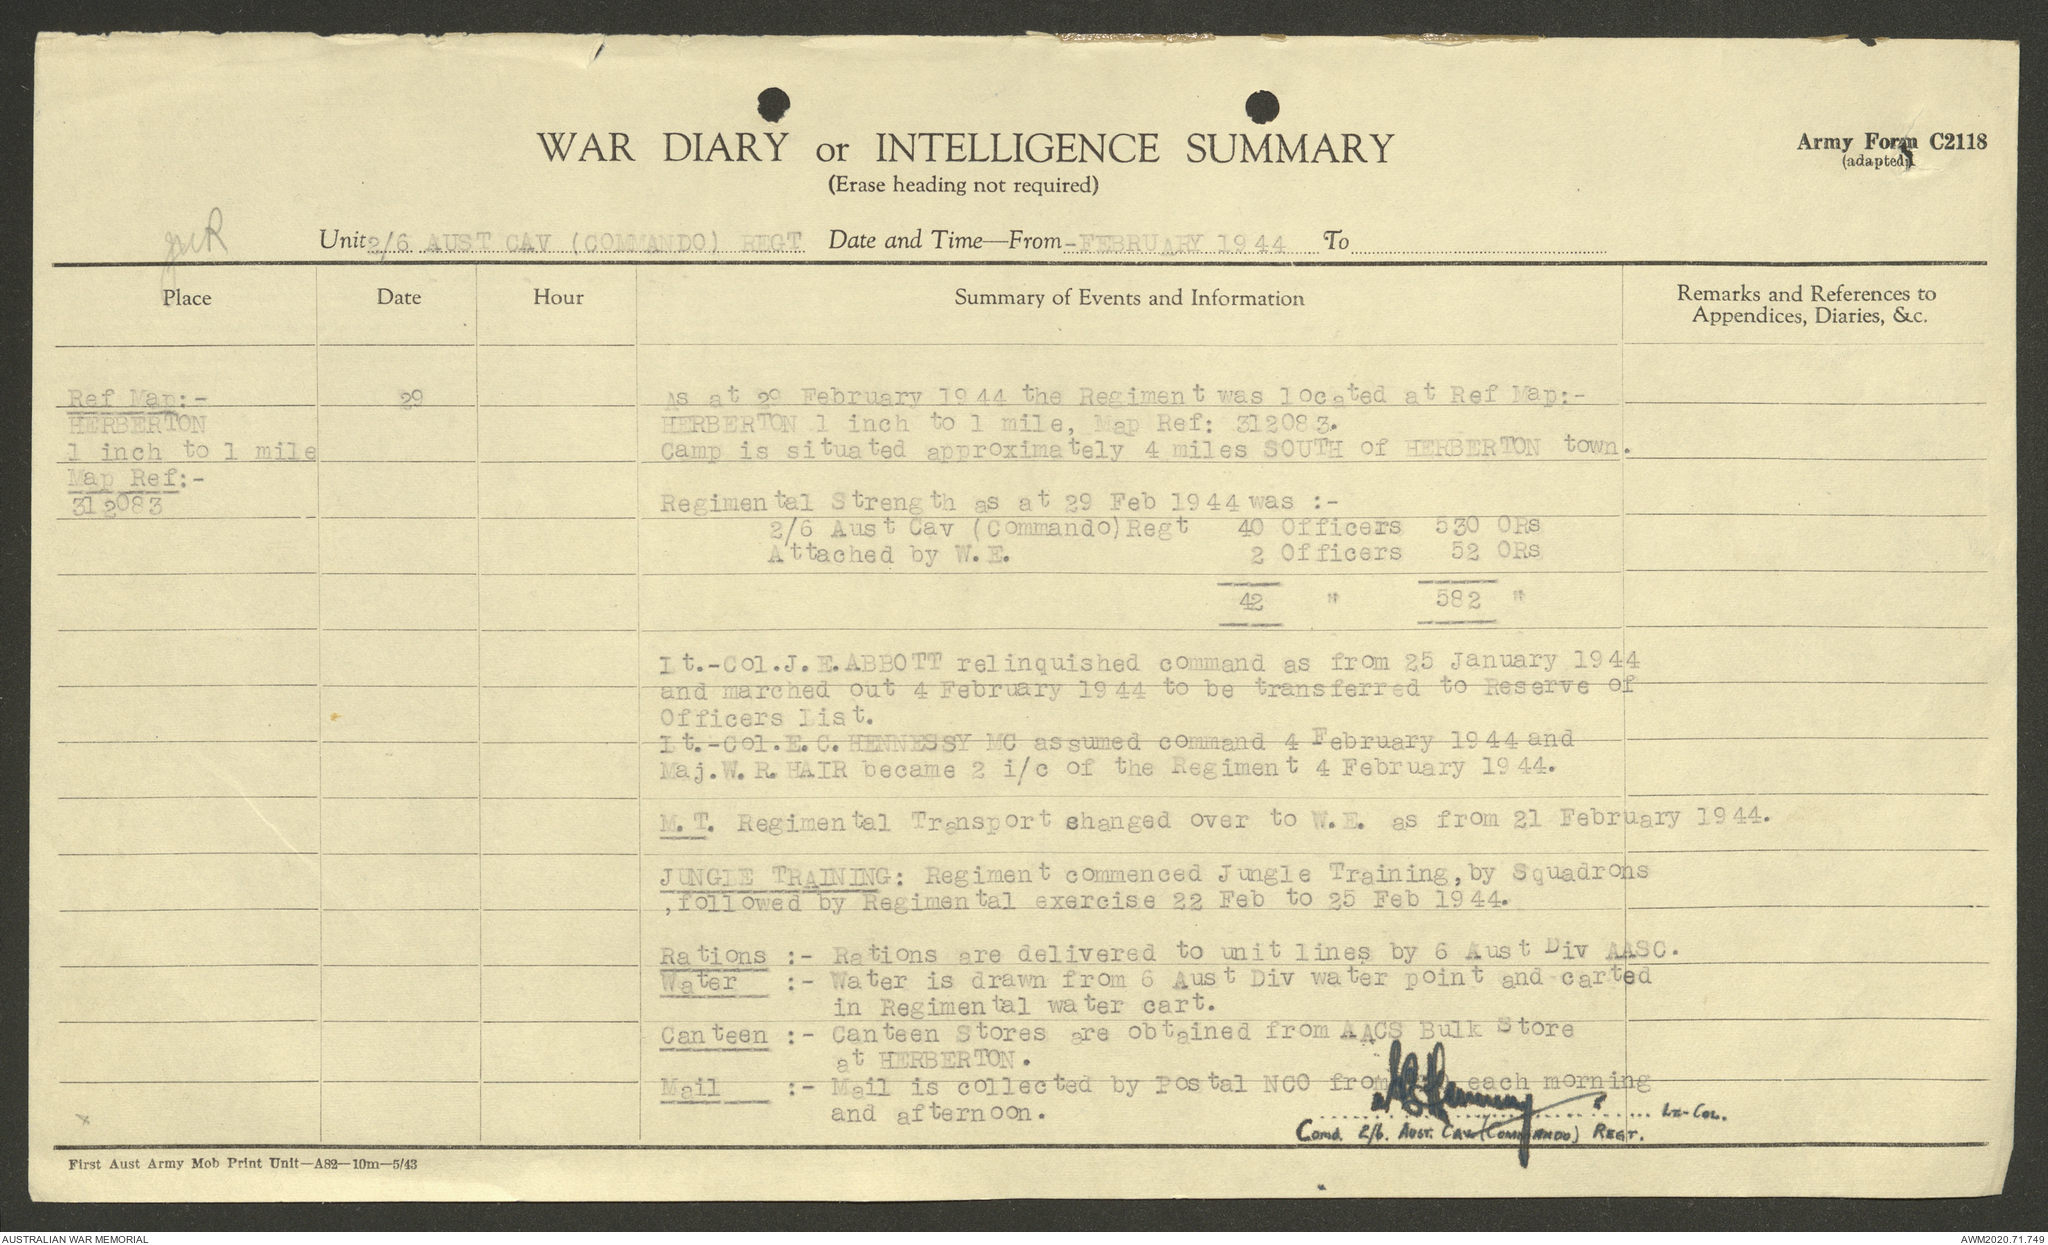 WAR DIARY or INTELLIGENCE SUMMARY
(Erase heading not required)
Army Form C2118
(adapted)
Unit 2/6 AUST CAV (COMMANDO) REGT Date and Time—From -FEBRUARY 1944 To
Place Date Hour Summary of Events and Information Remarks and References to
Appendices, Diaries, &c.
Ref Map:-
HERBERTON
1 inch to 1 mile
Map Ref:-
312083
29
As at 29 February 1944 the Regiment was located at Ref Map:-
HERBERTON 1 inch to 1 mile, Map Ref: 312083.
Camp is situated approximately 4 miles SOUTH of HERBERTON town.
Regimental Strength as at 29 Feb 1944 was :-
2/6 Aust Cav (Commando)Regt 40 Officers 530 ORs
Attached by W.E. 2 Officers 52 ORs
42 " 582 "
Lt.-Col.J.E.ABBOTT relinquished command as from 25 January 1944
and marched out 4 February 1944 to be transferred to Reserve of
Officers List.
Lt.-Col.E.C.HENNESSY MC assumed command 4 February 1944 and
Maj.W.R.HAIR became 2 i/c of the Regiment 4 February 1944.
M.T. Regimental Transport changed over to W.E. as from 21 February 1944.
JUNGLE TRAINING: Regiment commenced Jungle Training,by Squadrons
,followed by Regimental exercise 22 Feb to 25 Feb 1944.
Rations :- Rations are delivered to unit lines by 6 Aust Div AASC.
Water :- Water is drawn from 6 Aust Div water point and carted
in Regimental water cart.
Canteen :- Canteen Stores are obtained from AACS Bulk Store
at HERBERTON.
Mail :- Mail is collected by Postal NCO from each morning
and afternoon.
Lt-Col.
Comd. 2/6. Aust. Cav (Commando) Regt.
First Aust Army Mob Print Unit—A82—10m—5/43
AUSTRALIAN WAR MEMORIAL
AWM2020.71.749